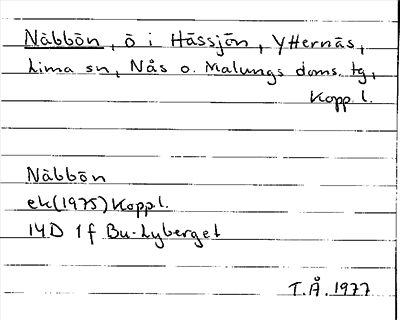 Näbbön, ö i Hässjön, Ytternäs,
Lima sn, Nås o. Malungs doms. tg,
Kopp. l.
Näbbön
ek(1975) Kopp l.
14D 1f Bu-Lyberget
T.Å. 1977